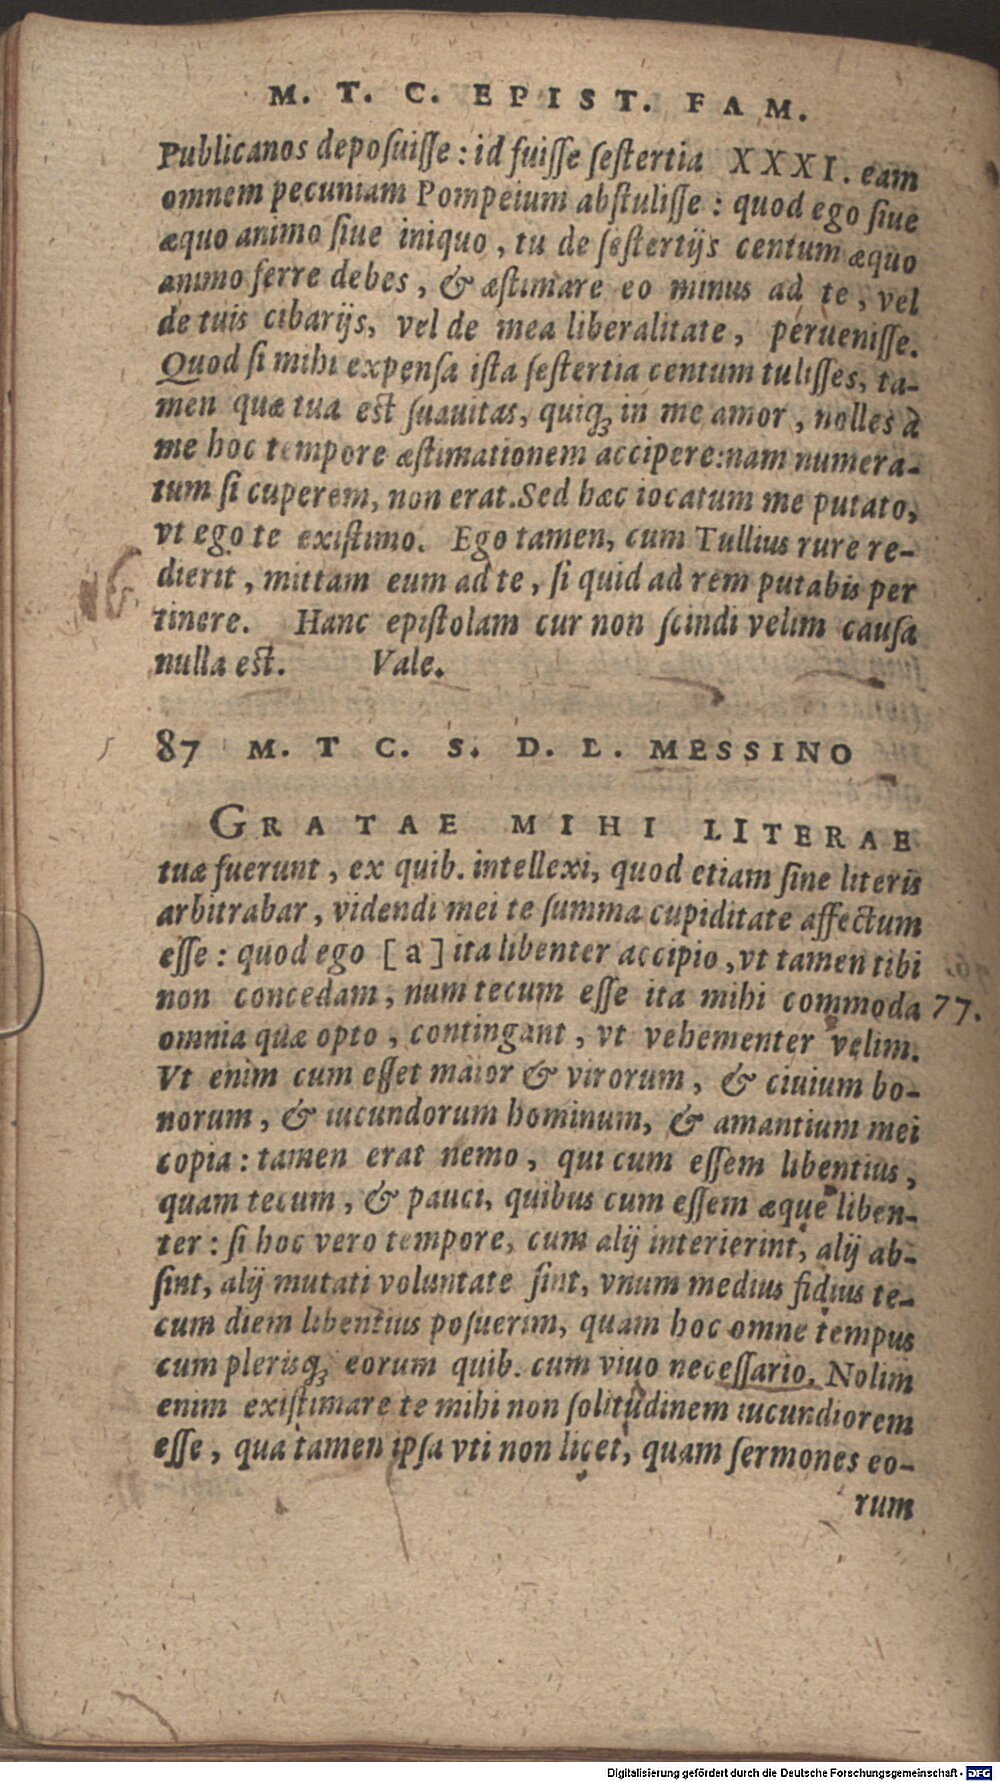 M. T. C. EPIST. FAM.
Publicanos deposuisse : id fuisse sestertia XXXI. eam
omnem pecuniam Pompeium abstulisse : quod ego siue
æquo animo siue iniquo , tu de sestertijs centum æquo
animo ferre debes , & æstimare eo minus ad te , vel
de tuis cibarijs, vel de mea liberalitate , peruenisse.
Quod si mihi expensa ista sestertia centum tulisses, ta-
men quæ tua est suauitas, quiq; in me amor , nolles à
me hoc tempore æstimationem accipere:nam numera-
tum si cuperem, non erat.Sed hæc iocatum me putato,
vt ego te existimo. Ego tamen, cum Tullius rure re-
dierit , mittam eum ad te , si quid ad rem putabis per
tinere. Hanc epistolam cur non scindi velim causa
nulla est. Vale.
87 M. T C. S. D. L. MESSINO
GRATAE MIHI LITERAE
tuæ fuerunt , ex quib. intellexi, quod etiam sine literis
arbitrabar , videndi mei te summa cupiditate affectum
esse : quod ego [a] ita libenter accipio ,vt tamen tibi
non concedam , num tecum esse ita mihi commoda 77.
omnia quæ opto , contingant , vt vehementer velim.
Vt enim cum esset maior & virorum , & ciuium bo-
norum , & iucundorum hominum, & amantium mei
copia : tamen erat nemo , qui cum essem libentius ,
quam tecum , & pauci, quibus cum essem æque liben-
ter : si hoc vero tempore, cum alij interierint, alij ab-
sint, alij mutati voluntate sint, vnum medius fidius te-
cum diem libentius posuerim, quam hoc omne tempus
cum plerisq; eorum quib. cum viuo necessario. Nolim
enim existimare te mihi non solitudinem iucundiorem
esse , qua tamen ipsa vti non licet, quam sermones eo-
rum
Digitalisierung gefördert durch die Deutsche Forschungsgemeinschaft - DFG